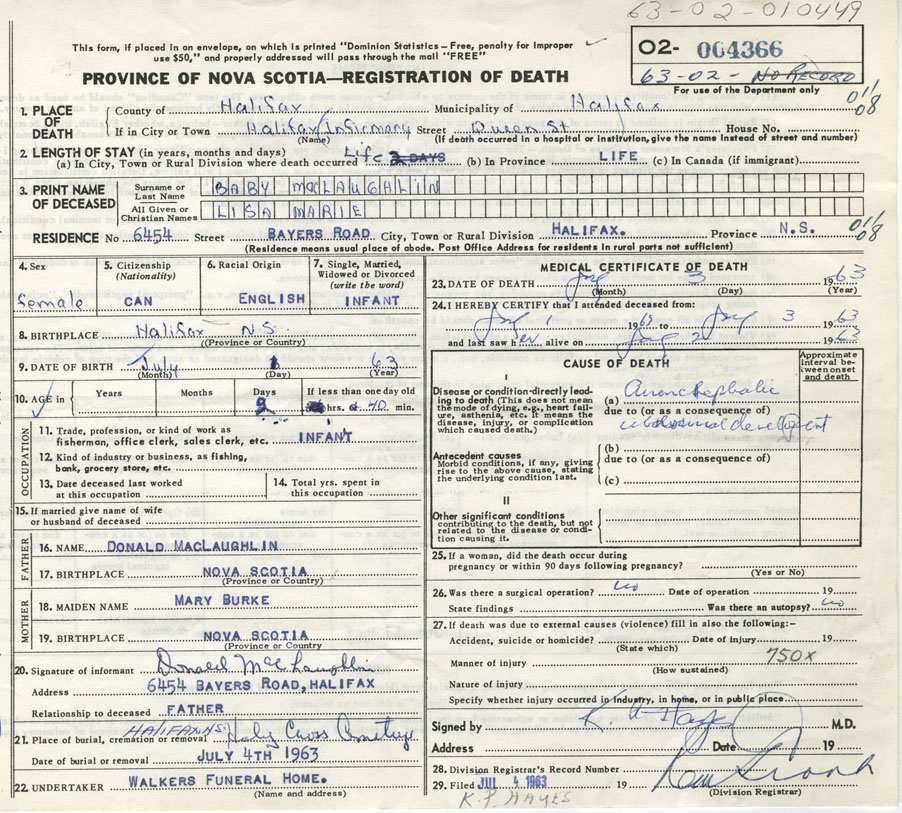 63-02-010449
This form, if placed in an envelope, on which is printed "Dominion Statistics – Free, penalty for improper
use $50," and properly addressed will pass through the mail "FREE"
O2- 004366
63-02- NO RECORD
PROVINCE OF NOVA SCOTIA—REGISTRATION OF DEATH
For use of the Department only
1. PLACE OF DEATH { County of Halifax Municipality of Halifax 011/08
If in City or Town Halifax Infirmary Street Queen St House No.
(Name) (If death occurred in a hospital or institution, give the name instead of street and number)
2. LENGTH OF STAY (in years, months and days) Life 2 DAYS
(a) In City, Town or Rural Division where death occurred (b) In Province LIFE (c) In Canada (if immigrant)
3. PRINT NAME OF DECEASED { Surname or Last Name BABY MCLAUGHLIN
All Given or Christian Names LISA MARIE
RESIDENCE No 6454 Street BAYERS ROAD City, Town or Rural Division HALIFAX. Province N.S. 011/08
(Residence means usual place of abode. Post Office Address for residents in rural parts not sufficient)
4. Sex
female
5. Citizenship
(Nationality)
CAN
6. Racial Origin
ENGLISH
7. Single, Married,
Widowed or Divorced
(write the word)
INFANT
8. BIRTHPLACE Halifax N.S.
(Province or Country)
9. DATE OF BIRTH July 1 63
(Month) (Day) (Year)
10. AGE in Years Months Days If less than one day old
2 hrs. or 40 min.
OCCUPATION
11. Trade, profession, or kind of work as
fisherman, office clerk, sales clerk, etc. INFANT
12. Kind of industry or business, as fishing,
bank, grocery store, etc.
13. Date deceased last worked
at this occupation
14. Total yrs. spent in
this occupation
15. If married give name of wife
or husband of deceased
FATHER
16. NAME DONALD MACLAUGHLIN
17. BIRTHPLACE NOVA SCOTIA
(Province or Country)
MOTHER
18. MAIDEN NAME MARY BURKE
19. BIRTHPLACE NOVA SCOTIA
(Province or Country
20. Signature of informant Donald McLaughlin
Address 6454 BAYERS ROAD, HALIFAX
Relationship to deceased FATHER
21. Place of burial, cremation or removal HALIFAX NS Holy Cross Cemetery
Date of burial or removal JULY 4TH 1963
22. UNDERTAKER WALKERS FUNERAL HOME.
(Name and address)
MEDICAL CERTIFICATE OF DEATH
23. DATE OF DEATH July 3 1963
(Month) (Day) (Year)
24. I HEREBY CERTIFY that I attended deceased from:
July 1 1963 to July 3 1963
and last saw her alive on July 2 1963
CAUSE OF DEATH
Approximate
interval be-
tween onset
and death
I
Disease or condition directly lead-
ing to death (This does not mean
the mode of dying, e.g., heart failure,
asthenia, etc. It means the
disease, injury, or complication
which caused death.)
(a) Anencephalic
due to (or as a consequence of)
Antecedent causes
Morbid conditions, if any, giving
rise to the above cause, stating
the underlying condition last.
(b)
due to (or as a consequence of)
(c)
II
Other significant conditions
contributing to the death, but not
related to the disease or condi-
tion causing it.
25. If a woman, did the death occur during
pregnancy or within 90 days following pregnancy?
(Yes or No)
26. Was there a surgical operation? no Date of operation 19
State findings Was there an autopsy? no
27. If death was due to external causes (violence) fill in also the following:–
Accident, suicide or homicide? Date of injury 19
(State which)
Manner of injury 750X
(How sustained)
Nature of injury
Specify whether injury occurred in industry, in home, or in public place
Signed by K P Hayes M.D.
Address Date 19
28. Division Registrar's Record Number
29. Filed JUL 4 1963 19
(Division Registrar)
K.P. HAYES